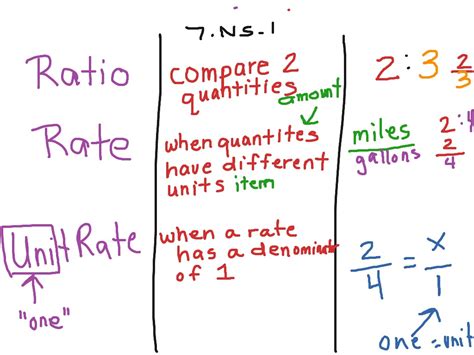 7.NS.1
Ratio
compare 2
quantities
amount
2:3 2/3
Rate
when quantites
have different
units item
miles
gallons
2:4
2/4
Unit Rate
"one"
when a rate
has a denominator
of 1
2/4 = x/1
one = unit